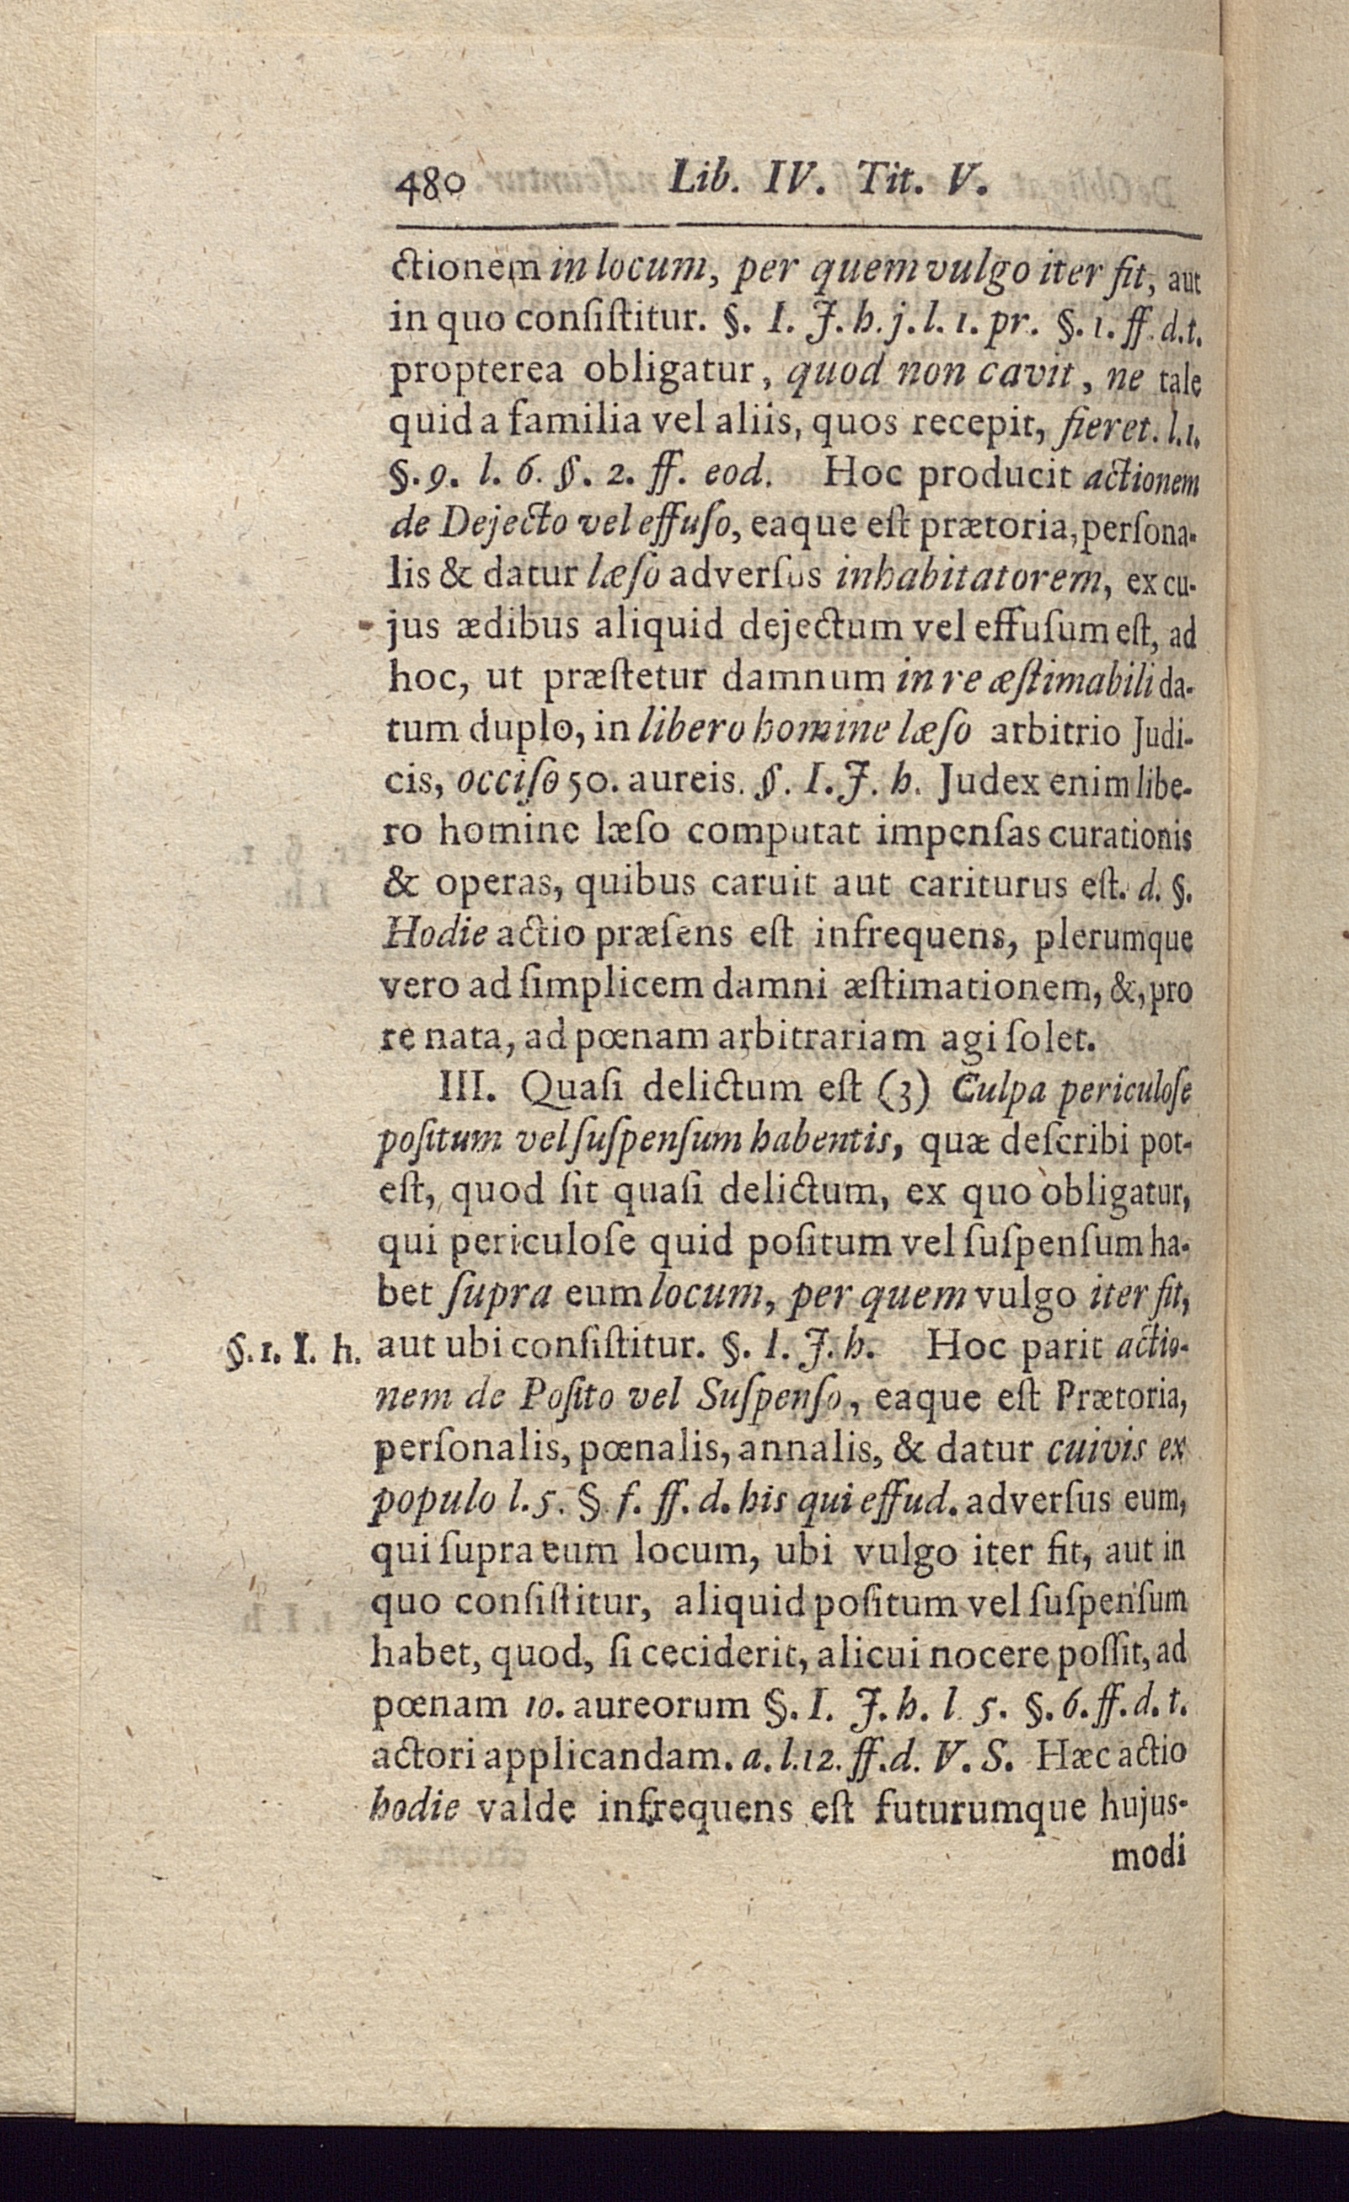 480 Lib. IV. Tit. V.
ctionem in locum, per quem vulgo iter fit, aut
in quo conſiſtitur. §. I. J. h. j. l. 1. pr. §. 1. ff. d. t.
propterea obligatur, quod non cavit, ne tale
quid a familia vel aliis, quos recepit, fieret. l. 1.
§. 9. l. 6. §. 2. ff. eod. Hoc producit actionem
de Dejecto vel effuſo, eaque eſt prætoria, perſona-
lis & datur læſo adverſus inhabitatorem, ex cu-
jus ædibus aliquid dejectum vel effuſum eſt, ad
hoc, ut præſtetur damnum in re æſtimabili da-
tum duplo, in libero homine læſo arbitrio Judi-
cis, occiſo 50. aureis. §. I. J. h. Judex enim libe-
ro homine læſo computat impenſas curationis
& operas, quibus caruit aut cariturus eſt. d. §.
Hodie actio præſens eſt infrequens, plerumque
vero ad ſimplicem damni æſtimationem, &, pro
re nata, ad pœnam arbitrariam agi ſolet.
III. Quaſi delictum eſt (3) Culpa periculoſe
poſitum vel ſuſpenſum habentis, quæ deſcribi pot-
eſt, quod ſit quaſi delictum, ex quo obligatur,
qui periculoſe quid poſitum vel ſuſpenſum ha-
bet ſupra eum locum, per quem vulgo iter fit,
§. 1. I. h. aut ubi conſiſtitur. §. I. J. h. Hoc parit actio-
nem de Poſito vel Suſpenſo, eaque eſt Prætoria,
perſonalis, pœnalis, annalis, & datur cuivis ex
populo l. 5. §. f. ff. d. his qui effud. adverſus eum,
qui ſupra eum locum, ubi vulgo iter fit, aut in
quo conſiſtitur, aliquid poſitum vel ſuſpenſum
habet, quod, ſi ceciderit, alicui nocere poſſit, ad
pœnam 10. aureorum §. I. J. h. l. 5. §. 6. ff. d. t.
actori applicandam. a. l. 12. ff. d. V. S. Hæc actio
hodie valde infrequens eſt futurumque hujus-
modi